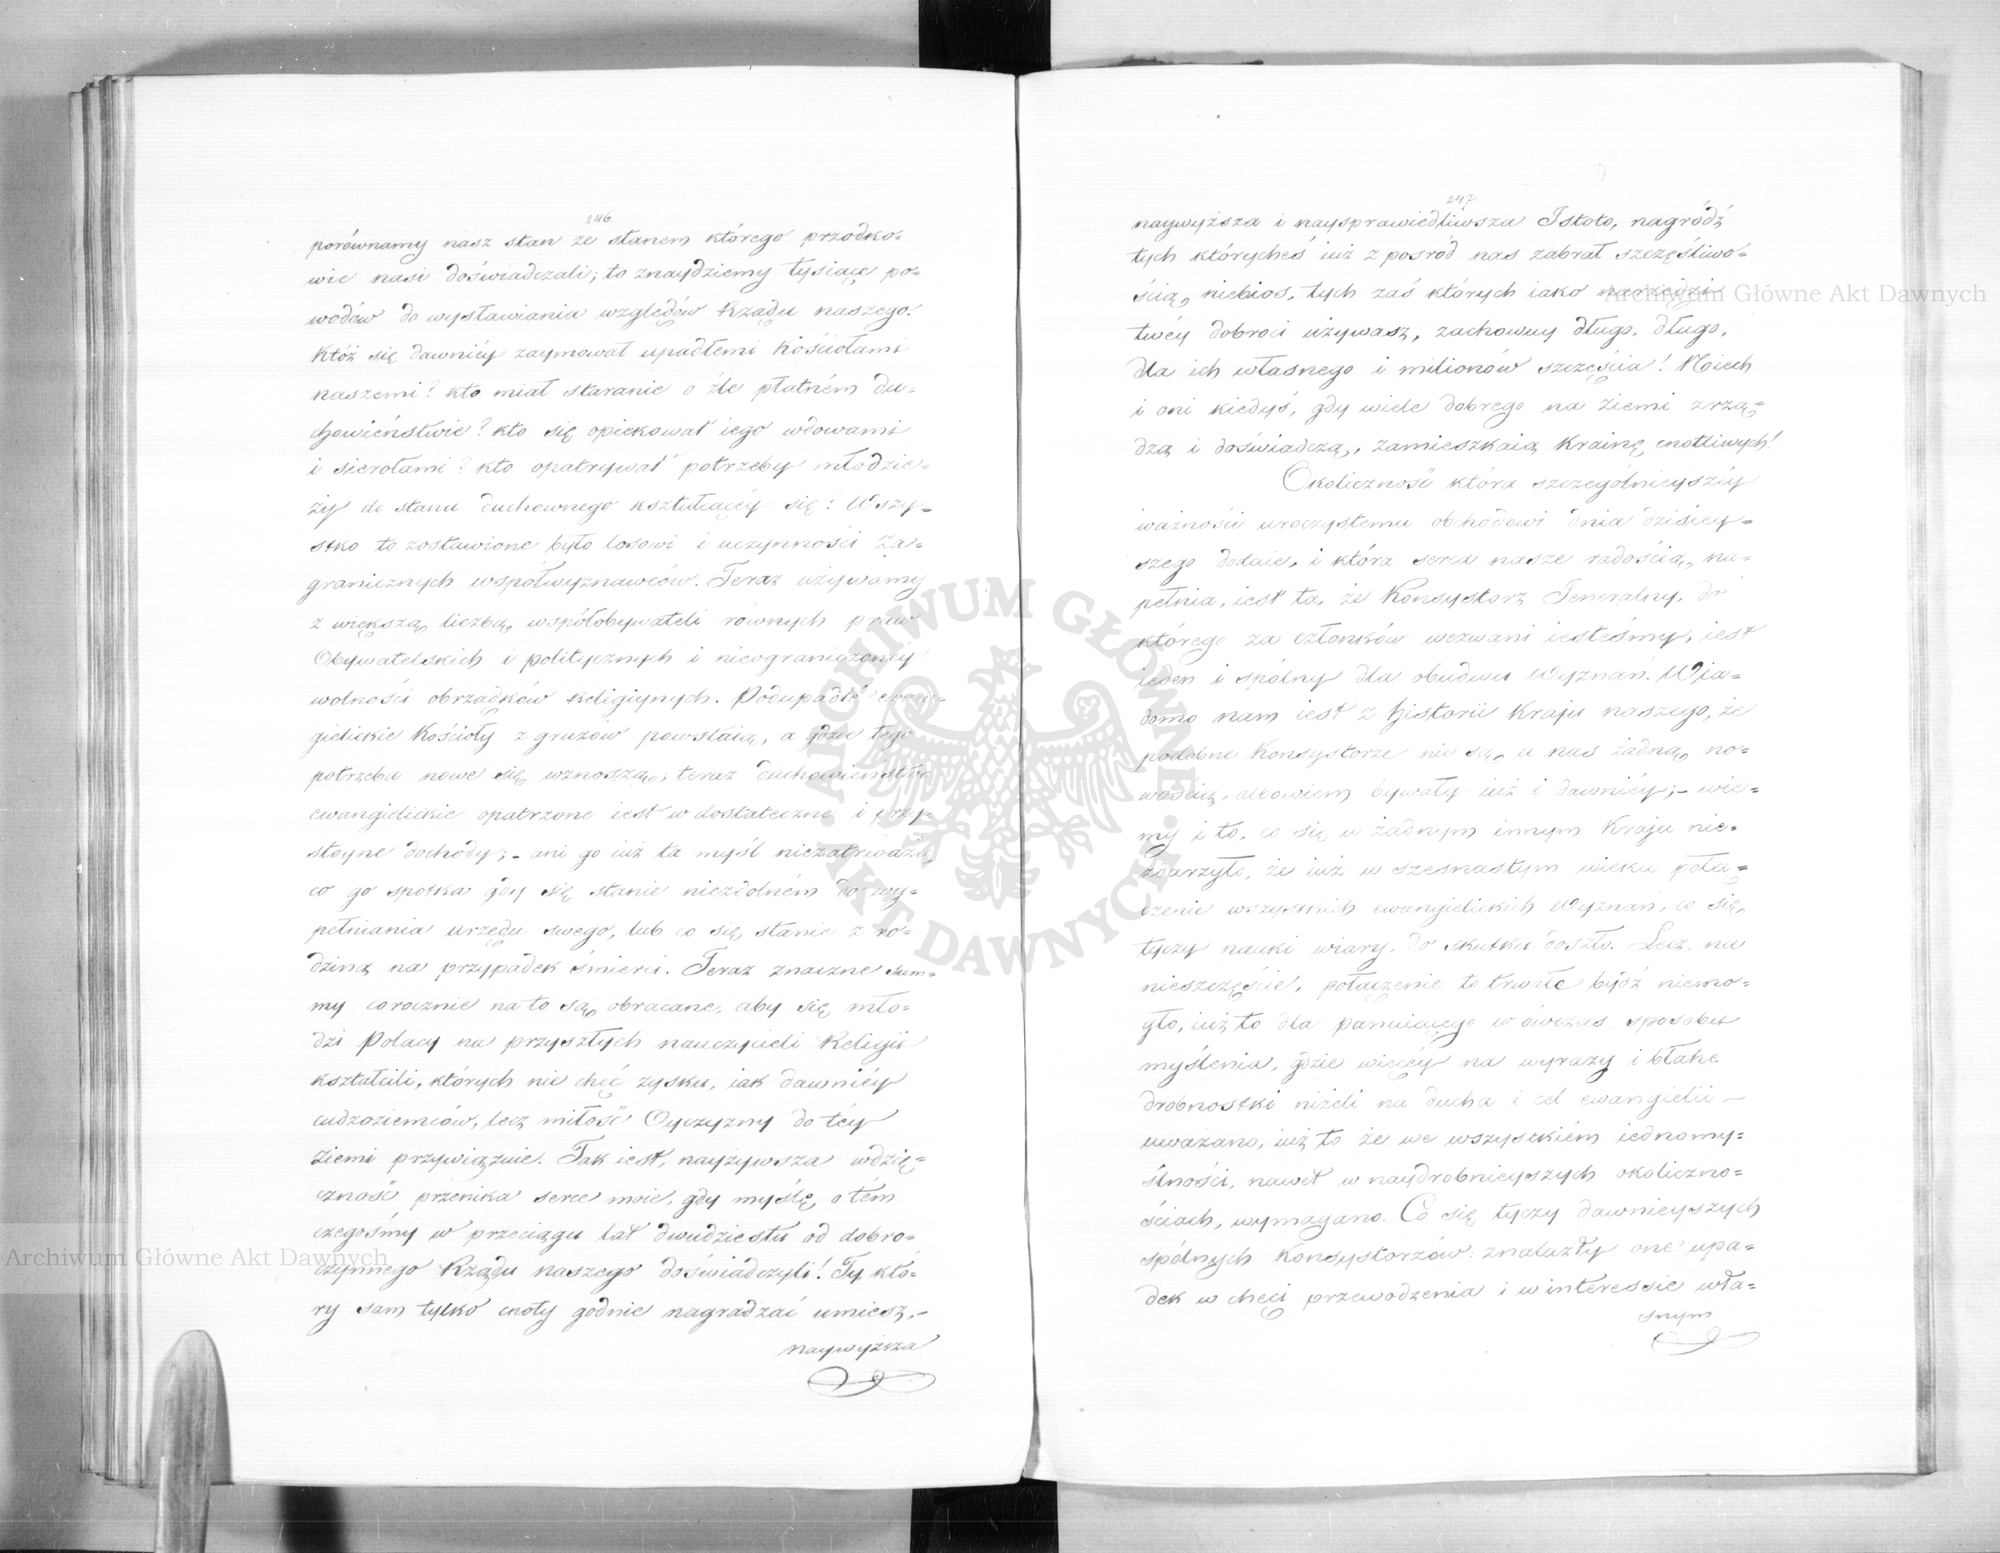 246
porównamy nasz stan ze stanem którego przodko-
wie nasi doświadczali; to znaydziemy tysiące po-
wodów do wysławiania względów Rządu naszego.
Któż się dawniéy zaymował upadłemi Kościołami
naszemi? kto miał staranie o źle płatném du-
chowieństwie? kto się opiekował iego wdowami
i sierotami? kto opatrywał potrzeby młodzie-
ży do stanu duchownego kształcącéy się? Wszy-
stko to zostawione było losowi i uczynności za-
granicznych współwyznawców. Teraz używamy
z większą liczbą współobywateli równych praw
Obywatelskich i politycznych i nieograniczonéy
wolności obrządków Religiynych. Podupadłe ewan-
gielickie Kościoły z gruzów powstaią, a gdzie tego
potrzeba nowe się wznoszą; teraz duchowieństwo
ewangielickie opatrzone iest w dostateczne i przy-
stoyne dochody; - ani go iuż ta myśl niezatrważa,
co go spotka gdy się stanie niezdolném do wy-
pełniania urzędu swego, lub co się stanie z ro-
dziną na przypadek śmierci. Teraz znaczne sum-
my corocznie na to są obracane, aby się mło-
dzi Polacy na przyszłych nauczycieli Religii
kształcili, których nie chęć zysku, iak dawniéy
cudzoziemców, lecz miłość Oyczyzny do téy
ziemi przywiązuie. Tak iest, nayżywsza wdzię-
czność przenika serce moie, gdy myślę o tém
czegośmy w przeciągu lat dwudziestu od dobro-
czynnego Rządu naszego doświadczyli! Ty któ-
ry sam tylko cnoty godnie nagradzać umiesz, -
naywyższa
247
naywyższa i naysprawiedliwsza Istoto, nagródź
tych którycheś iuż z pośród nas zabrał szczęśliwo-
ścią niebios, tych zaś których iako narzędzi
twéy dobroci używasz, zachoway długo, długo,
dla ich własnego i milionów szczęścia! Niech
i oni kiedyś, gdy wiele dobrego na ziemi zrzą-
dzą i doświadczą, zamieszkaią Krainę cnotliwych!
Okoliczność która szczególnieyszéy
ważności uroczystemu obchodowi dnia dzisiey-
szego dodaie, i która serca nasze radością na-
pełnia, iest ta, że Konsystorz Jeneralny, do
którego za członków wezwani iesteśmy, iest
ieden i spólny dla obudwu Wyznań. Wia-
domo nam iest z historii Kraju naszego, że
podobne Konsystorze nie są u nas żadną no-
wością, albowiem bywały iuż i dawniéy; - wie-
my i to, co się w żadnym innym Kraju nie-
zdarzyło, że iuż w szesnastym wieku połą-
czenie wszystkich ewangielickich Wyznań, co się
tyczy nauki wiary, do skutku doszło. Lecz na
nieszczęście, połączenie to trwałe bydź niemo-
gło, iuż to dla panuiącego wówczas sposobu
myślenia, gdzie więcéy na wyrazy i błahe
drobnostki niżeli na ducha i cel ewangielii -
uważano, iuż to że we wszystkiém iednomy-
ślności, nawet w naydrobnieyszych okoliczno-
ściach, wymagano. Co się tyczy dawnieyszych
spólnych Konsystorzów: znalazły one upa-
dek w chęci przewodzenia i w interessie wła-
snym
Archiwum Główne Akt Dawnych
Archiwum Główne Akt Dawnych
ARCHIWUM GŁÓWNE AKT DAWNYCH